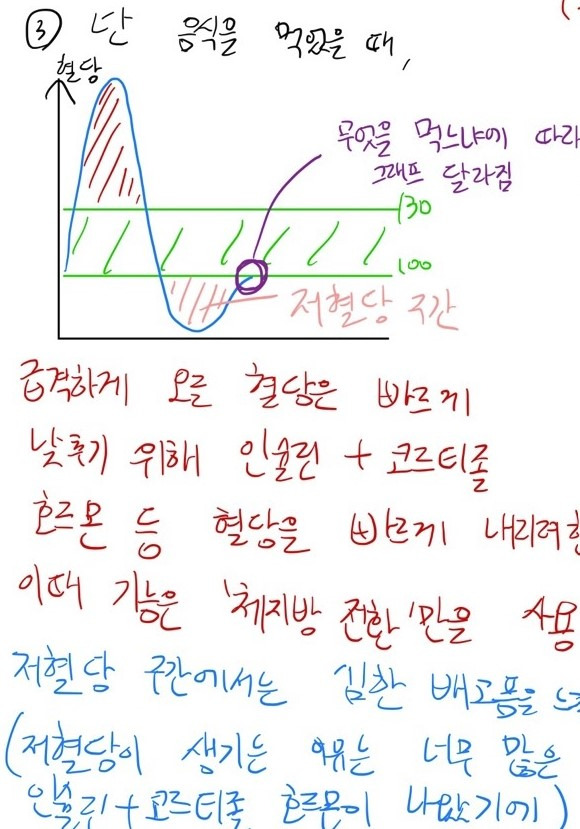 ③ 단 음식을 먹었을 때,
혈당
무엇을 먹느냐에 따라
그래프 달라짐
130
100
저혈당 구간
급격하게 오른 혈당은 빠르게
낮추기 위해 인슐린 + 코르티졸
호르몬 등 혈당을 빠르게 내리려
이때 기능은 '체지방 전환'만을 사용
저혈당 구간에서는 심한 배고픔을
(저혈당이 생기는 이유는 너무 많은
인슐린+코르티졸 호르몬이 나왔기에)